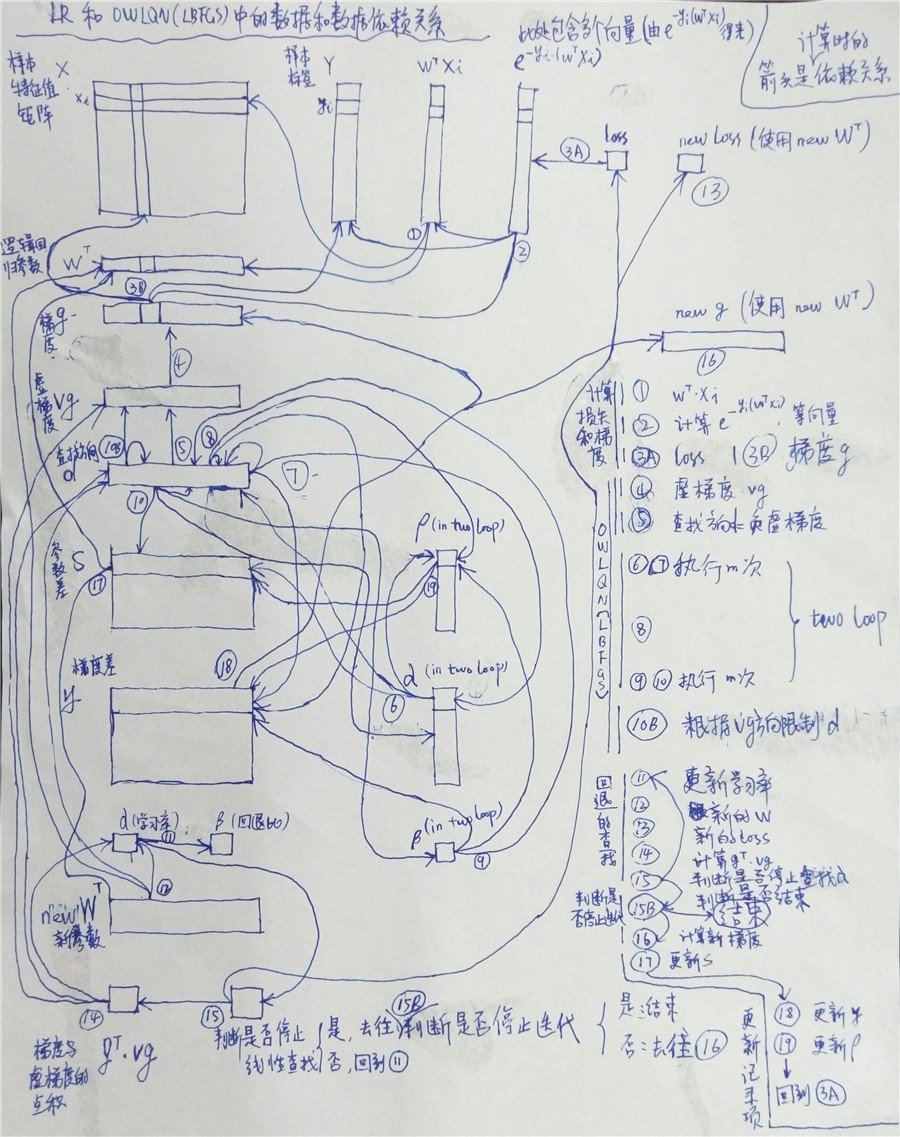 LR 和 OWLQN(LBFGS) 中的数据和数据依赖关系
此处包含多个向量(由e^-yi(w^T xi) 得来)
e^-yi·(w^T xi)
计算时的
箭头是依赖关系
样本
特征值
矩阵
X
xi
样本
标签
Y
yi
w^T xi
①
②
3A
loss
new loss (使用 new W^T)
13
逻辑回
归参数
W^T
3B
梯度
g
new g (使用 new W^T)
16
④
虚梯度 vg
10B
⑤
⑧
查找方向
d
⑦
⑩
参数差
S
⑰
ρ (in two loop)
⑲
梯度差
y
⑱
α (in two loop)
⑥
β (in two loop)
⑨
α (学习率)
⑪
β (回退比)
⑫
new W^T
新参数
⑭
梯度与
虚梯度的
点积
g^T·vg
⑮
判断是否停止
线性查找
是, 去往 15B 判断是否停止迭代
否, 回到⑪
是:结束
否:去往⑯
计算损失和梯度
① w^T·xi
② 计算 e^-yi(w^T xi), 等向量
3A loss | 3B 梯度 g
OWLQN(LBFGS)
④ 虚梯度 vg
⑤ 查找方向d=负虚梯度
⑥ ⑦ 执行m次
⑧
two loop
⑨ ⑩ 执行m次
10B 根据vg方向限制d
回退的查找
⑪ 更新学习率
⑫ 新的w
⑬ 新的loss
⑭ 计算g^T·vg
⑮ 判断是否停止查找α
判断是
否停止迭代
15B 判断是否结束
结束
⑯ 计算新梯度
⑰ 更新s
更新记录项
⑱ 更新y
⑲ 更新ρ
回到 3A